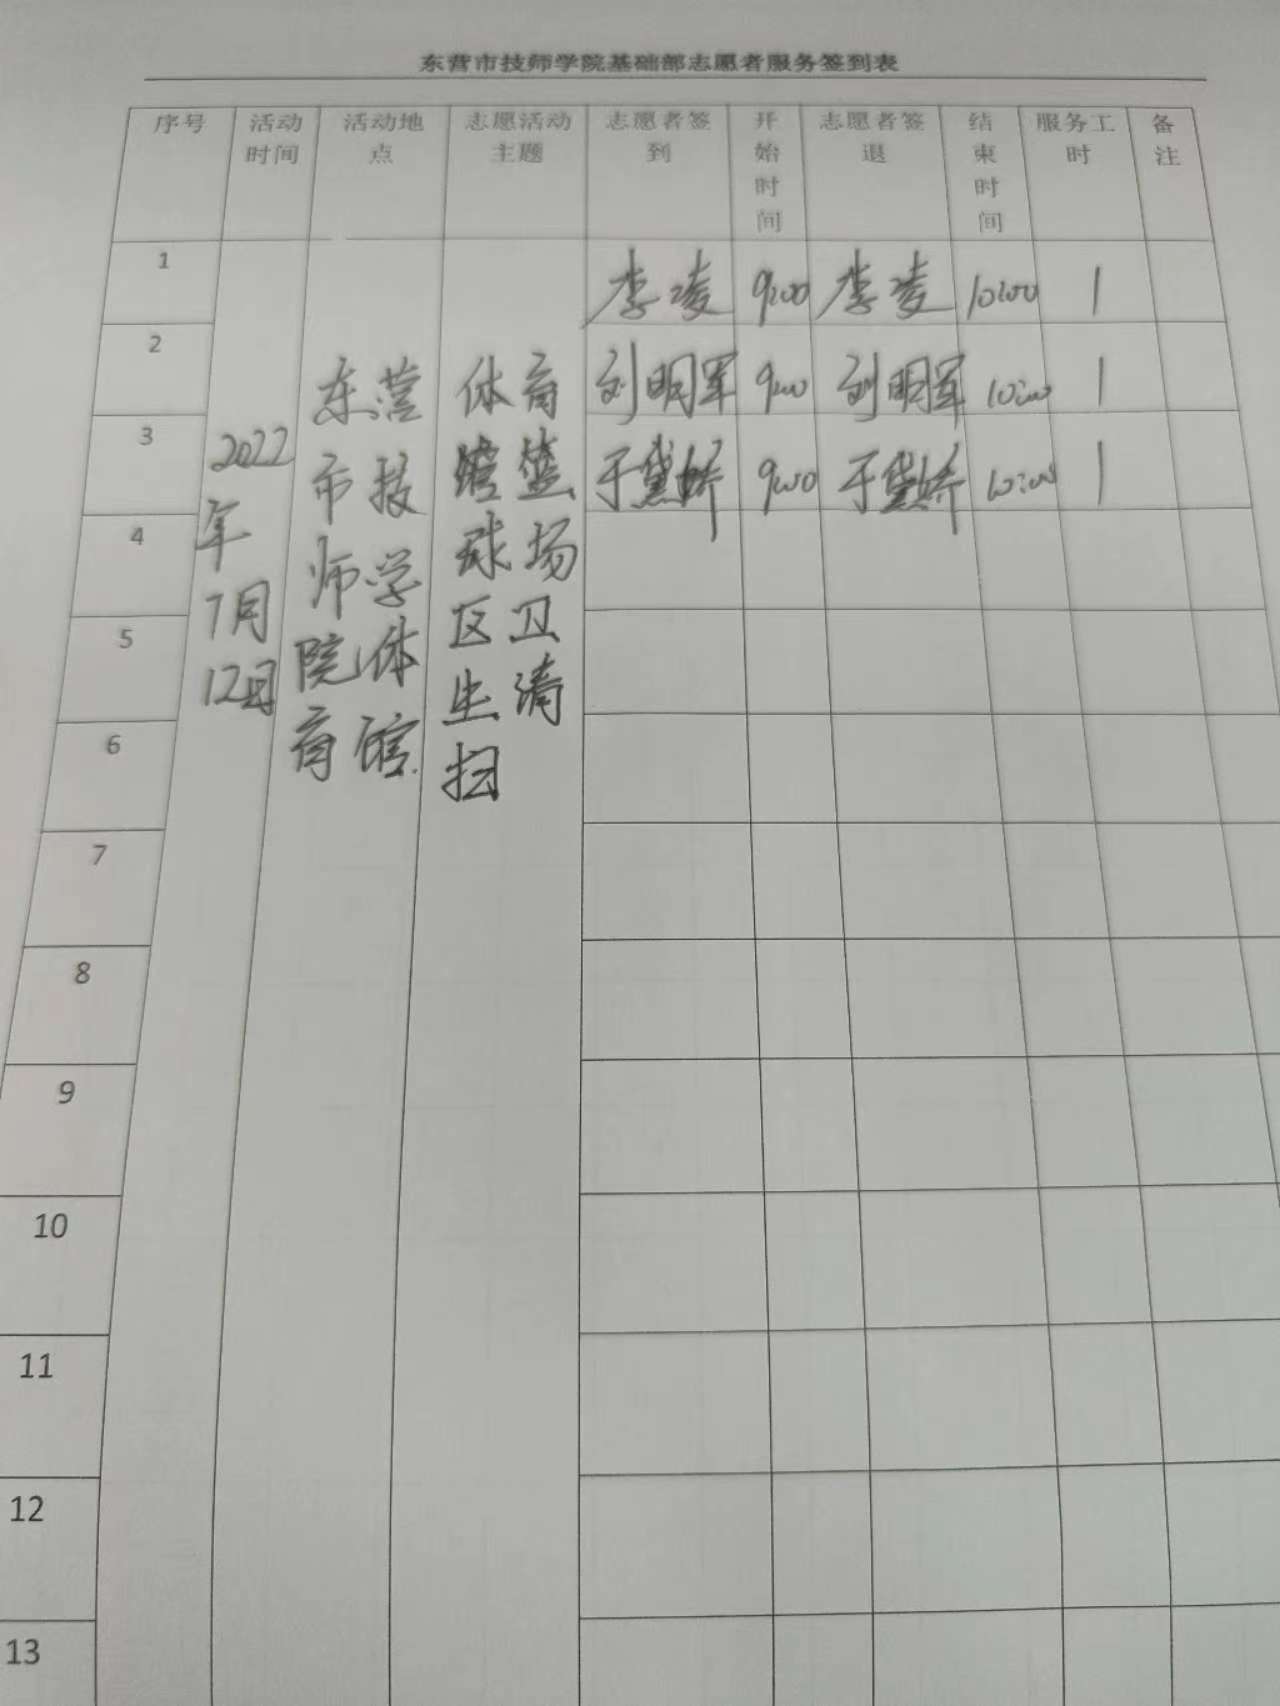 东营市技师学院基础部志愿者服务签到表
序号 活动时间 活动地点 志愿活动主题 志愿者签到 开始时间 志愿者签退 结束时间 服务工时 备注
2022年7月12日
东营市技师学院体育馆
体育馆篮球场区卫生清扫
1 李凌 9:00 李凌 10:00 1
2 刘明军 9:00 刘明军 10:00 1
3 于黛娇 9:00 于黛娇 10:00 1
4
5
6
7
8
9
10
11
12
13